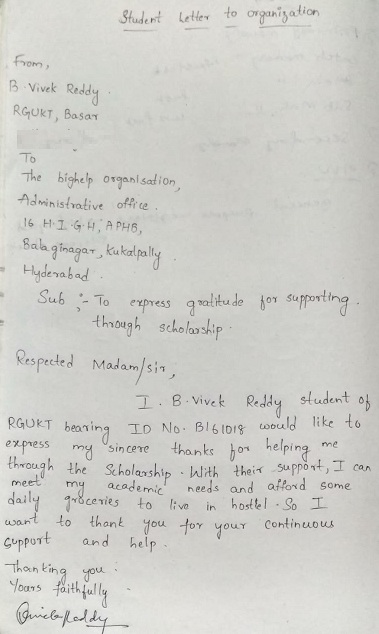 Student Letter to organization
From,
B. Vivek Reddy.
RGUKT, Basar
To
The bighelp organisation,
Administrative office.
16 H.I.G.H, APHB,
Balaginagar, Kukalpally.
Hyderabad.
Sub :- To express gratitude for supporting.
through scholarship.
Respected Madam/sir,
I. B. Vivek Reddy student of
RGUKT bearing ID No. B161018 would like to
express my sincere thanks for helping me
through the Scholarship. With their support, I can
meet my academic needs and afford some
daily groceries to live in hostel. So I
want to thank you for your continuous
support and help.
Thanking you.
Yours faithfully